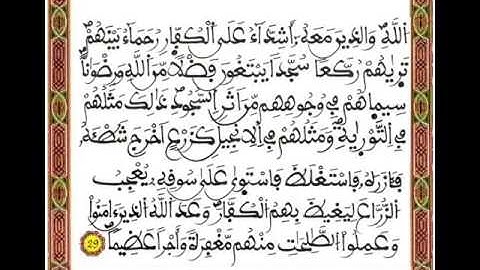 اللَّهِ وَالذِينَ مَعَهُ أَشِدَّآءُ عَلَى الْكُفّ۪ارِ رُحَمَآءُ بَيْنَهُمْ
تَر۪يٰهُمْ رُكَّعاً سُجَّداً يَبْتَغُونَ فَضْلًا مِّنَ اللَّهِ وَرِضْوَٰناً
سِيمَاهُمْ فِے وُجُوهِهِم مِّنَ اَثَرِ السُّجُودِ ذَٰلِكَ مَثَلُهُمْ
فِے التَّوْر۪يٰةِ وَمَثَلُهُمْ فِے الْإِنجِيلِ كَزَرْعٍ أَخْرَجَ شَطْـَٔهُۥ
فَـَٔازَرَهُۥ فَاسْتَغْلَظَ فَاسْتَوَىٰ عَلَىٰ سُوقِهِۦ يُعْجِبُ
الزُّرَّاعَ لِيَغِيظَ بِهِمُ الْكُفَّارَ وَعَدَ اللَّهُ الذِينَ ءَامَنُوا
وَعَمِلُوا الصَّٰلِحَٰتِ مِنْهُم مَّغْفِرَةً وَأَجْراً عَظِيماً 29